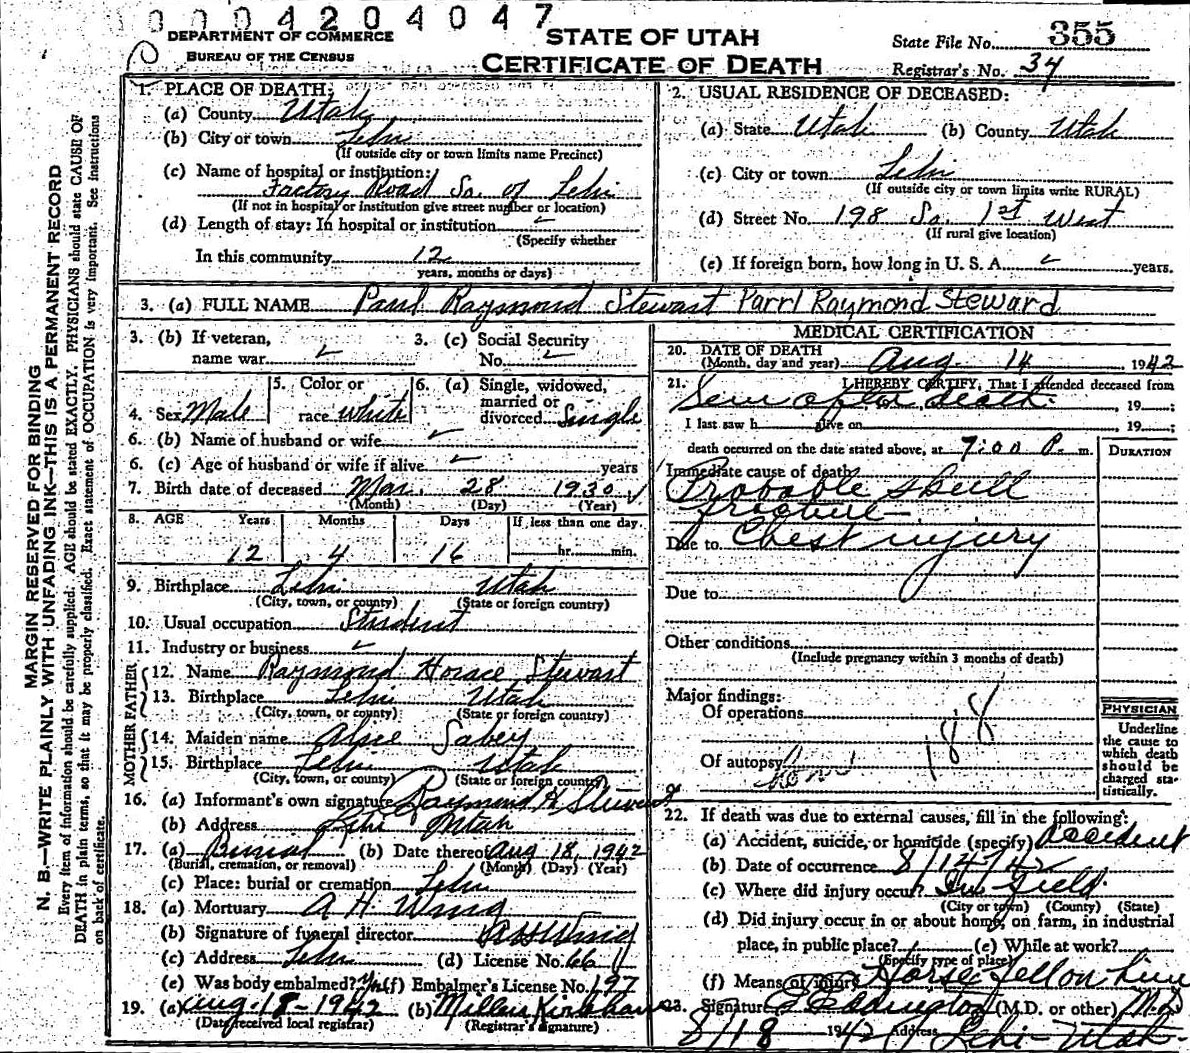 0004204047
DEPARTMENT OF COMMERCE
BUREAU OF THE CENSUS
STATE OF UTAH
CERTIFICATE OF DEATH
State File No. 355
Registrar's No. 34
MARGIN RESERVED FOR BINDING
N. B.—WRITE PLAINLY WITH UNFADING INK—THIS IS A PERMANENT RECORD
Every item of information should be carefully supplied. AGE should be stated EXACTLY. PHYSICIANS should state CAUSE OF
DEATH in plain terms, so that it may be properly classified. Exact statement of OCCUPATION is very important. See instructions
on back of certificate.
1. PLACE OF DEATH:
(a) County Utah
(b) City or town Lehi
(If outside city or town limits name Precinct)
(c) Name of hospital or institution:
Factory Road So. of Lehi
(If not in hospital or institution give street number or location)
(d) Length of stay: In hospital or institution
(Specify whether
In this community 12
years, months or days)
2. USUAL RESIDENCE OF DECEASED:
(a) State Utah (b) County Utah
(c) City or town Lehi
(If outside city or town limits write RURAL)
(d) Street No. 198 So. 1st West
(If rural give location)
(e) If foreign born, how long in U. S. A. years.
3. (a) FULL NAME Paul Raymond Stewart Parrl Raymond Steward
3. (b) If veteran,
name war
3. (c) Social Security
No.
4. Sex Male
5. Color or
race white
6. (a) Single, widowed,
married or
divorced Single
6. (b) Name of husband or wife
6. (c) Age of husband or wife if alive years
7. Birth date of deceased Mar. 28 1930
(Month) (Day) (Year)
8. AGE Years Months Days If less than one day.
12 4 16 hr. min.
9. Birthplace Lehi Utah
(City, town, or county) (State or foreign country)
10. Usual occupation Student
11. Industry or business
FATHER
12. Name Raymond Horace Stewart
13. Birthplace Lehi Utah
(City, town, or county) (State or foreign country)
MOTHER
14. Maiden name Alsie Sabey
15. Birthplace Lehi Utah
(City, town, or county) (State or foreign country)
16. (a) Informant's own signature Raymond H Stewart
(b) Address Lehi Utah
17. (a) Burial (b) Date thereof Aug 18, 1942
(Burial, cremation, or removal) (Month) (Day) (Year)
(c) Place: burial or cremation Lehi
18. (a) Mortuary A H Wing
(b) Signature of funeral director A H Wing
(c) Address Lehi (d) License No. 66
(e) Was body embalmed? (f) Embalmer's License No. 197
19. (a) Aug. 18-1942 (b) Millen Kirkham
(Date received local registrar) (Registrar's signature)
MEDICAL CERTIFICATION
20. DATE OF DEATH
(Month, day and year) Aug. 14 1942
21. I HEREBY CERTIFY, That I attended deceased from
Seen after death, 19 ;
I last saw h alive on , 19 ;
death occurred on the date stated above, at 7:00 P. m.
DURATION
Immediate cause of death
Probable skull
fracture
Due to Chest injury
Due to
Other conditions
(Include pregnancy within 3 months of death)
Major findings:
Of operations
188
Of autopsy
PHYSICIAN
Underline
the cause to
which death
should be
charged sta-
tistically.
22. If death was due to external causes, fill in the following:
(a) Accident, suicide, or homicide (specify) Accident
(b) Date of occurrence 8/14/42
(c) Where did injury occur? In field
(City or town) (County) (State)
(d) Did injury occur in or about home, on farm, in industrial
place, in public place? (e) While at work?
(Specify type of place)
(f) Means of injury Horse fell on him
23. Signature E Eddington (M.D. or other) M.D
8/18 1942 Address Lehi-Utah